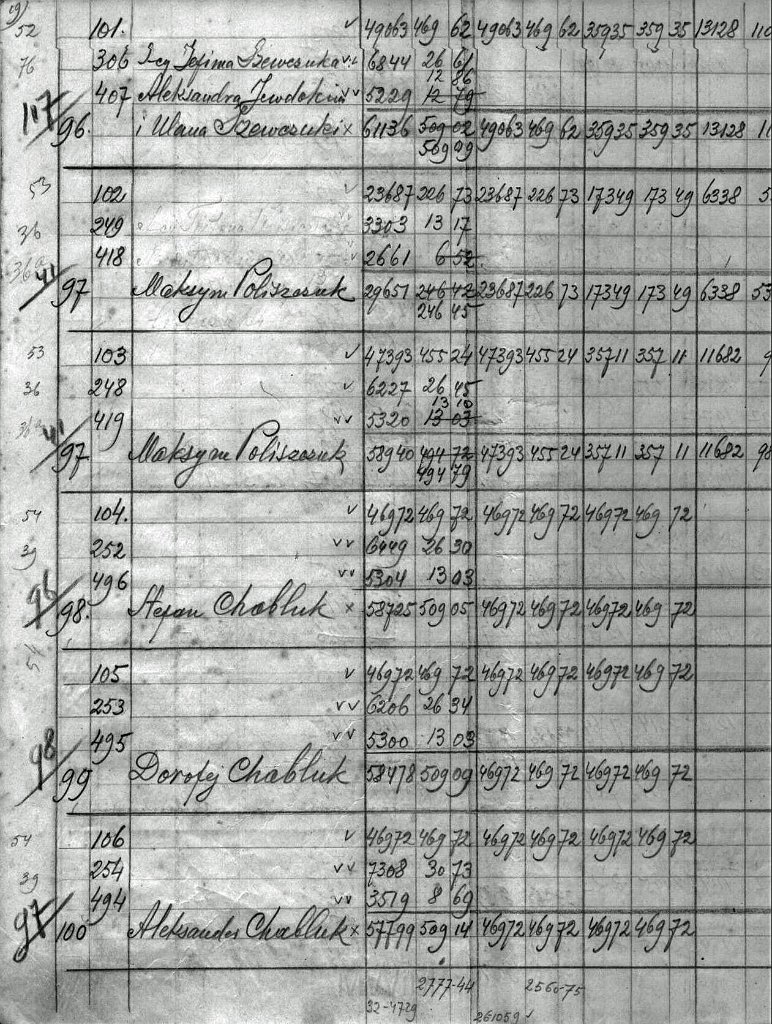 52 101. 49063 469 62 49063 469 62 35935 359 35 13128
76 306 Jefima Szewczuka 6844 26 61
12 86
407 Aleksandra Jewdokim 5229 12 79
117 96. i Ulana Szewczuki x 61136 509 02 49063 469 62 35935 359 35 13128
509 09
53 102 23687 226 73 23687 226 73 17349 173 49 6338
36 249 3303 13 17
418 2661 6 52
41 97 Maksym Poliszczuk 29651 246 42 23687 226 73 17349 173 49 6338 53
246 45
53 103 47393 455 24 47393 455 24 35711 357 11 11682 9
36 248 6227 26 45
13 10
419 5320 13 03
41 97 Maksym Poliszczuk 58940 494 72 47393 455 24 35711 357 11 11682 98
494 79
54 104. 46972 469 72 46972 469 72 46972 469 72
39 252 6449 26 30
496 5304 13 03
96 98. Stepan Chabluk x 58725 509 05 46972 469 72 46972 469 72
54 105 46972 469 72 46972 469 72 46972 469 72
253 6206 26 34
495 5300 13 03
98 99 Dorofej Chabluk 58478 509 09 46972 469 72 46972 469 72
54 106 46972 469 72 46972 469 72 46972 469 72
39 254 7308 30 73
494 3519 8 69
97 100 Aleksander Chabluk x 57799 509 14 46972 469 72 46972 469 72
2777-44 2560-75
32-4729 261059